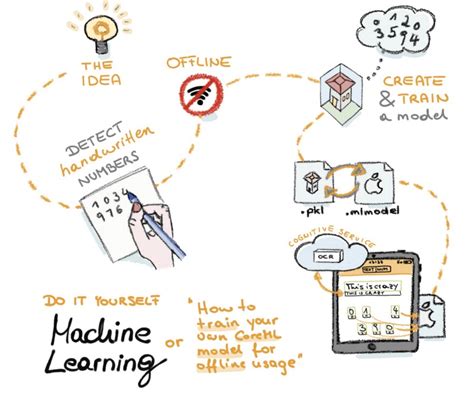 THE
IDEA
OFFLINE
0120
3594
CREATE
& TRAIN
a model
DETECT
handwritten
NUMBERS
1034
976
.pkl
.mlmodel
COGNITIVE SERVICE
OCR
This is crazy
THIS IS CRAZY
0 1 4
3 9 0
DO IT YOURSELF
Machine
Learning
or
"How to
train your
own CoreML
model for
offline usage"